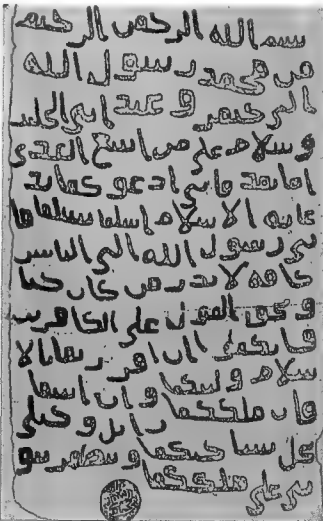 بسم الله الرحمن الرحيم
من محمد رسول الله
الى جيفر و عبد ابني الجلند
و سلام على من اتبع الهدى
اما بعد فاني ادعو كما بد
عايه الاسلام اسلما تسلما فا
ني رسول الله الى الناس
كافه لاندر من كان حيا
و يحق القول على الكافرين
فانكما ان اقررتما بالا
سلام وليتكما و ان ابيتما
فان ملككما زايل و خيلي
تحل بساحتكما و تظهر نبو
تي على ملككما